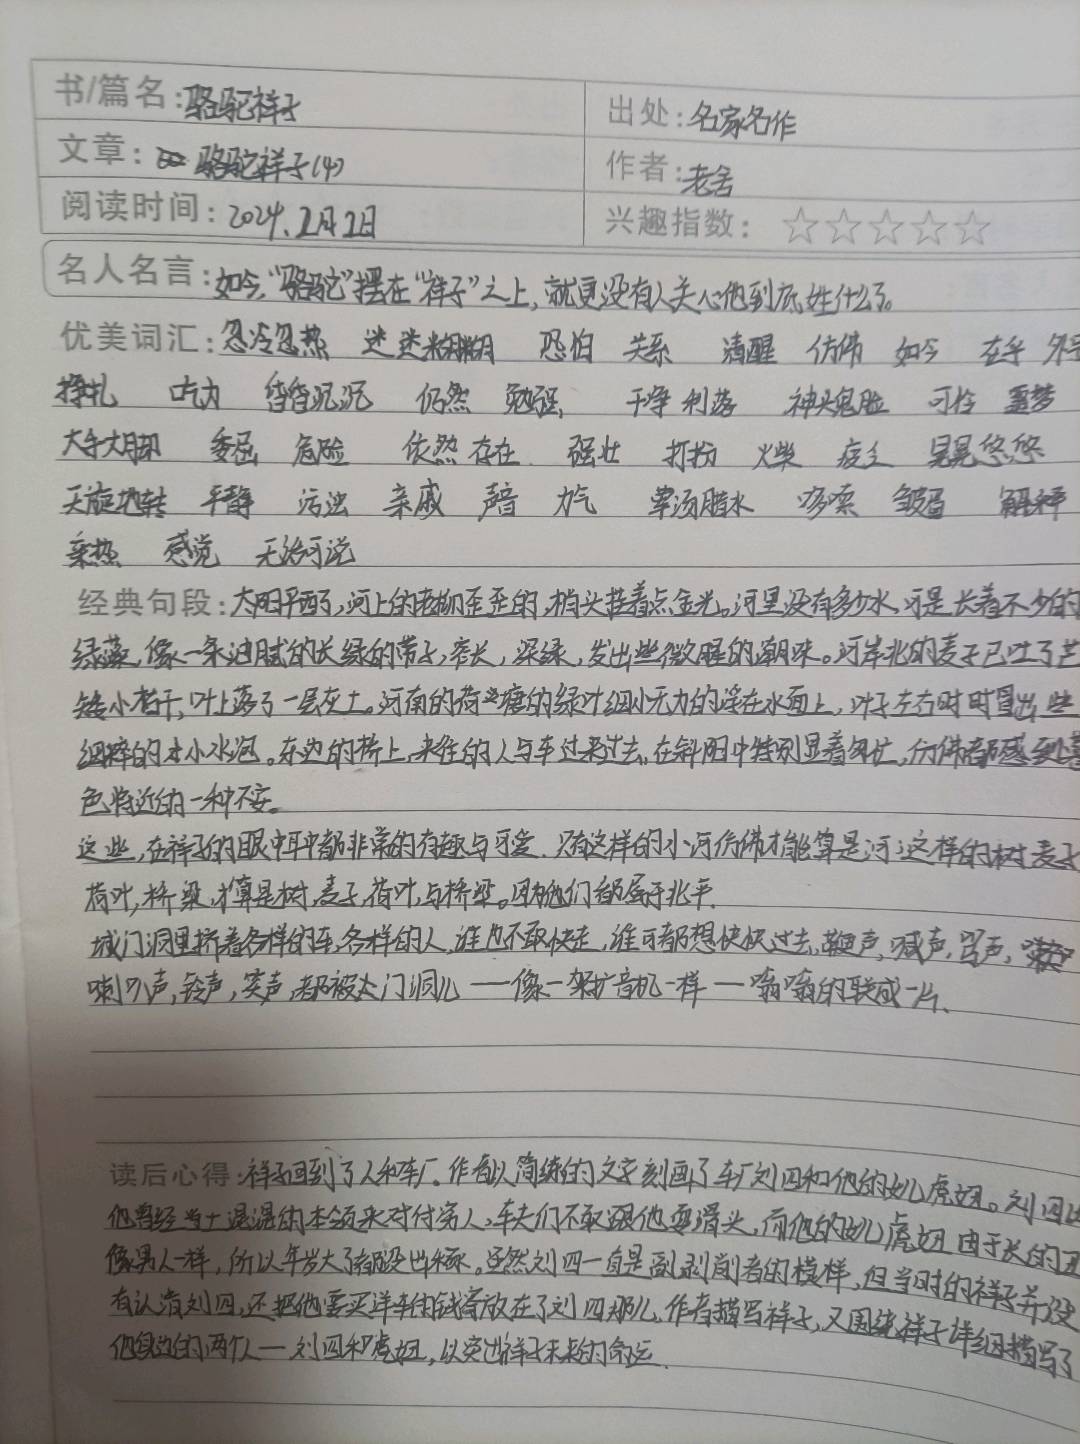 书/篇名：骆驼祥子 出处：名家名作
文章： 骆驼祥子(4) 作者：老舍
阅读时间：2024.2月2日 兴趣指数：☆☆☆☆☆
名人名言：如今，“骆驼”摆在“祥子”之上，就更没有人关心他到底姓什么了。
优美词汇：忽冷忽热 迷迷糊糊 恐怕 关系 清醒 仿佛 如今 在乎
挣扎 吃力 昏昏沉沉 仍然 勉强 干净利落 神头鬼脸 可怜 噩梦
大手大脚 委屈 危险 依然 存在 强壮 打扮 火柴 疲乏 晃晃悠悠
天旋地转 平静 污浊 亲戚 声音 力气 苦汤腊水 哆嗦 皱眉
亲热 感觉 无话可说
经典句段：太阳平西了，河上的老柳歪歪的，梢头挂着点金光。河里没有多少水，可是长着不少的
绿藻，像一条油腻的长绿的带子，窄长，深绿，发出些微腥的潮味。河岸北的麦子已吐了芒
矮小枯干，叶上落了一层灰土。河南的荷塘的绿叶细小无力的浮在水面上，叶子左右时时冒出些
细碎的小水泡。东边的桥上，来往的人与车过来过去，在斜阳中特别显着匆忙，仿佛都感到暮
色将近的一种不安。
这些，在祥子的眼中耳中都非常的有趣与可爱。只有这样的小河仿佛才能算是河；这样的树，麦子
荷叶，桥梁，才算是树，麦子，荷叶，与桥梁。因为他们都属于北平.
城门洞里挤着各样的车，各样的人，谁也不敢快走，谁可都想快快过去，鞭声，喊声，骂声，
喇叭声，铃声，笑声，都被大门洞儿——像一架扩音机一样——嗡嗡的联成一片、
读后心得：祥子回到了人和车厂。作者以简练的文字刻画了车厂刘四和他的女儿虎妞。刘四以
他曾经当土混混的本领来对付穷人，车夫们不敢跟他耍滑头，而他的女儿虎妞由于长的丑
像男人一样，所以年岁大了都没出嫁。虽然刘四一直是副剥削者的模样，但当时的祥子并没
有认清刘四，还把他要买洋车的钱寄放在了刘四那儿。作者描写祥子，又围绕祥子详细描写了
他身边的两个人——刘四和虎妞，以突出祥子未来的命运.